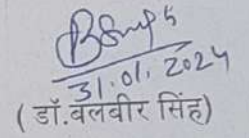 31.01.2024
(डॉ.बलबीर सिंह)